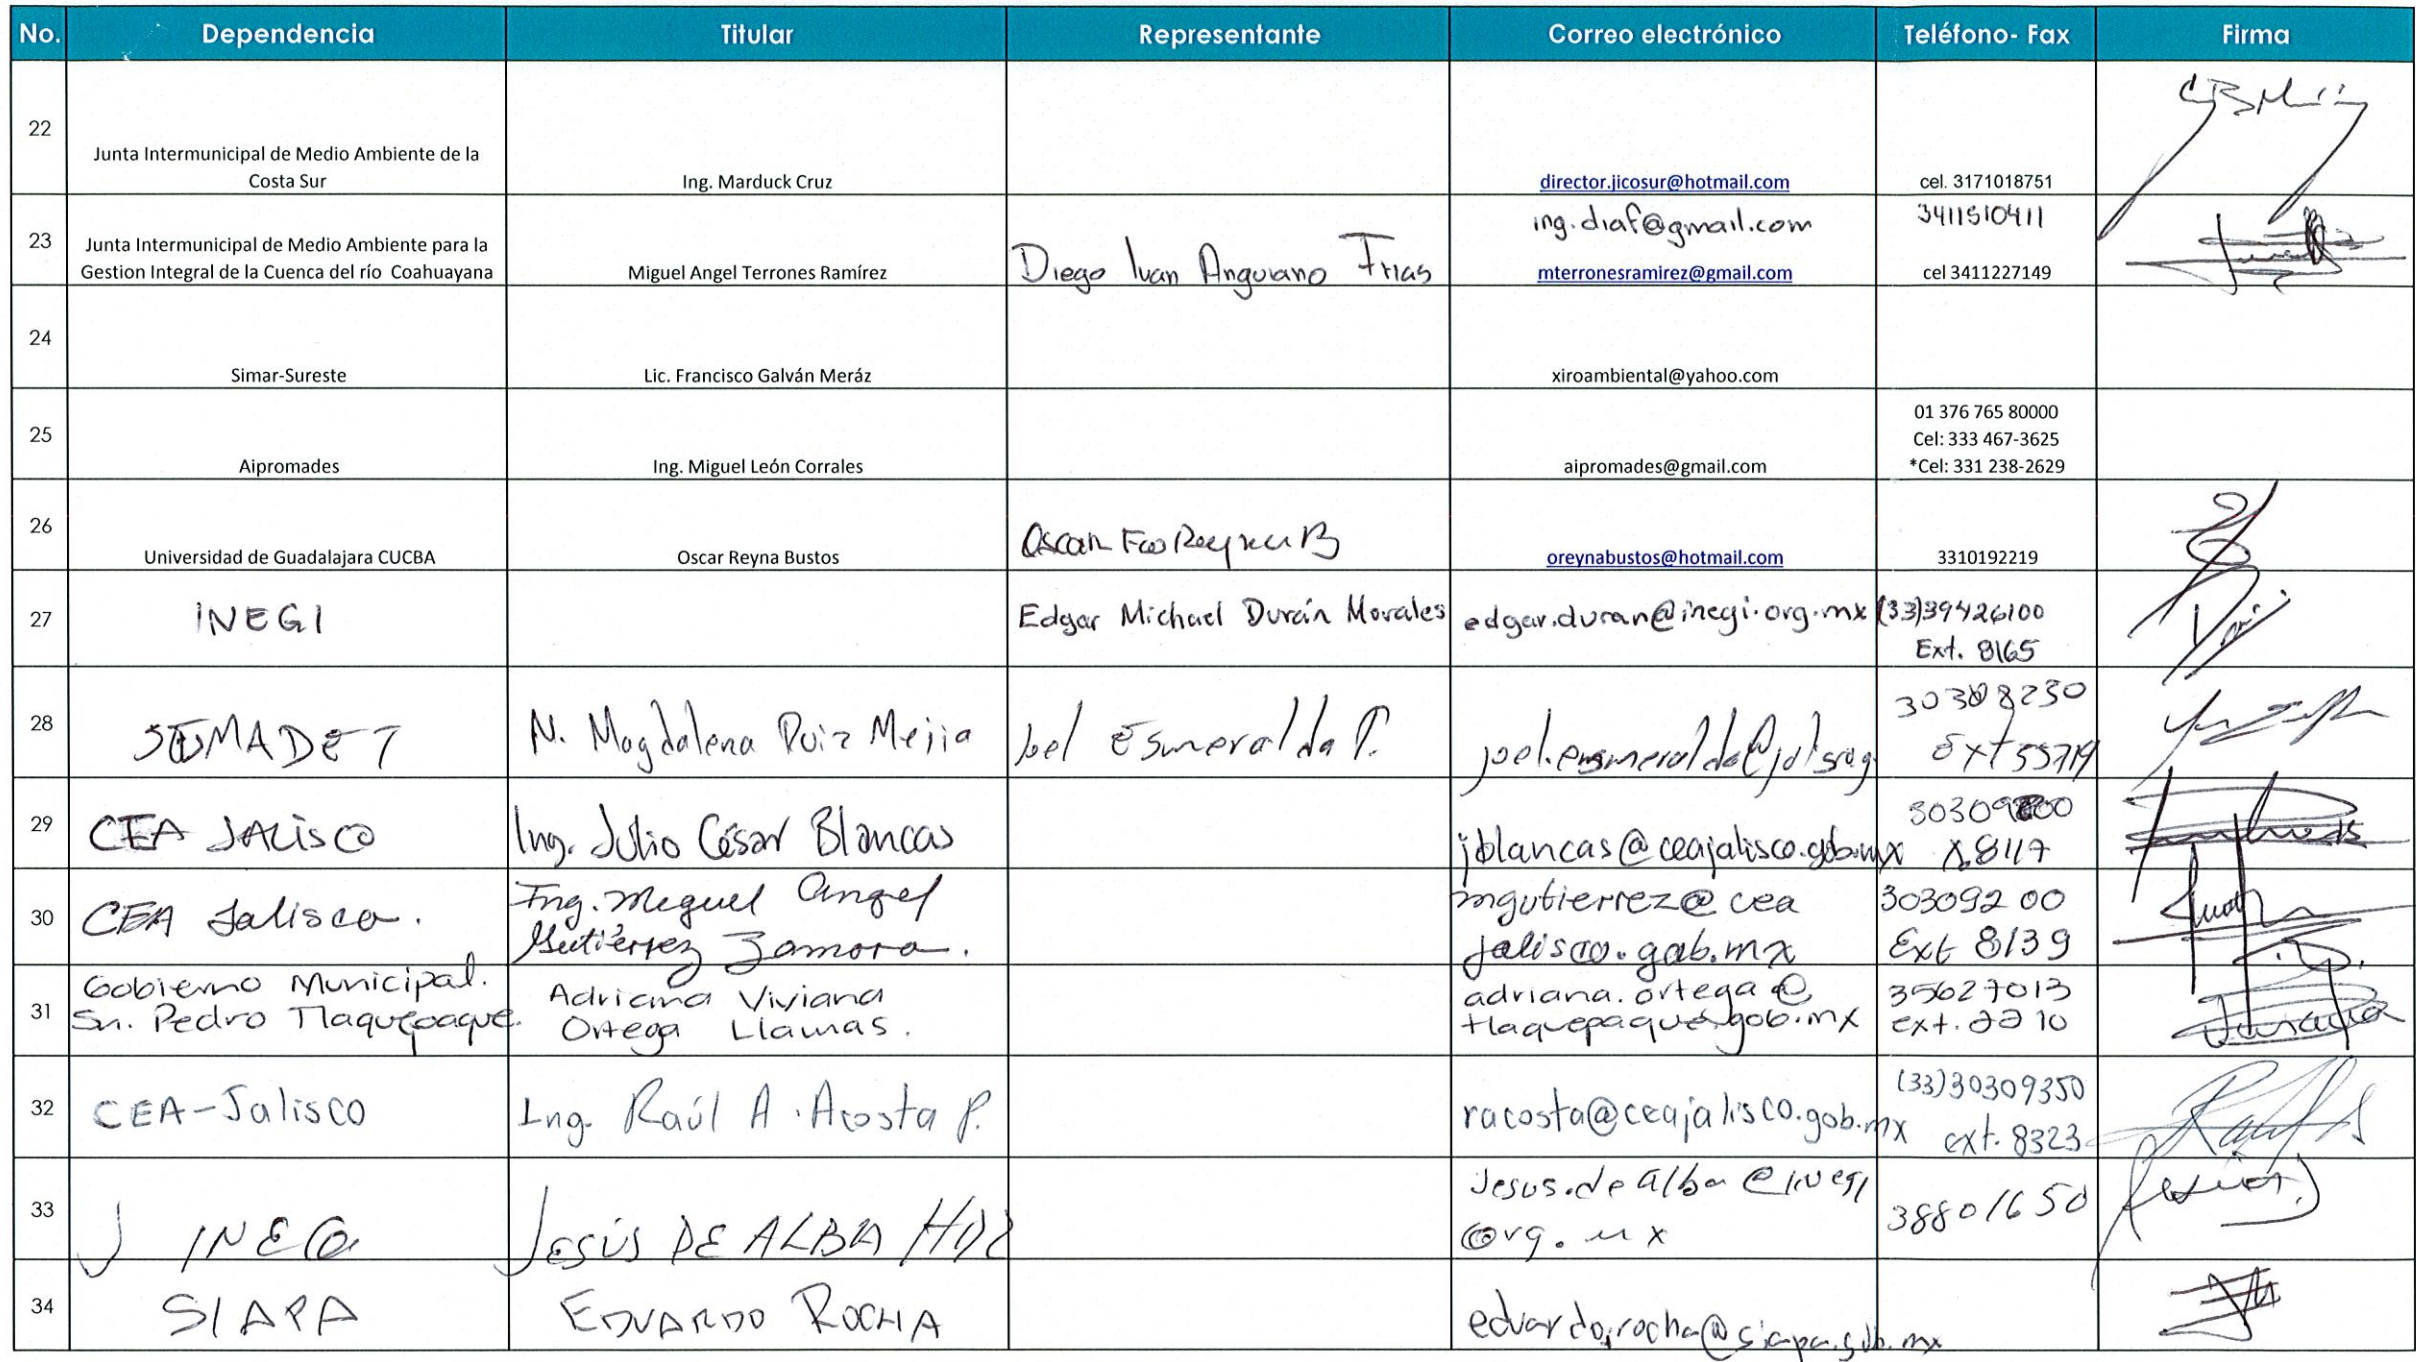 No. Dependencia Titular Representante Correo electrónico Teléfono- Fax Firma
22
Junta Intermunicipal de Medio Ambiente de la
Costa Sur
Ing. Marduck Cruz
director.jicosur@hotmail.com
cel. 3171018751
23
Junta Intermunicipal de Medio Ambiente para la
Gestion Integral de la Cuenca del río Coahuayana
Miguel Angel Terrones Ramírez
Diego Ivan Anguiano Frias
ing.diaf@gmail.com
mterronesramirez@gmail.com
3411510411
cel 3411227149
24
Simar-Sureste
Lic. Francisco Galván Meráz
xiroambiental@yahoo.com
25
Aipromades
Ing. Miguel León Corrales
aipromades@gmail.com
01 376 765 80000
Cel: 333 467-3625
*Cel: 331 238-2629
26
Universidad de Guadalajara CUCBA
Oscar Reyna Bustos
Oscar Fco Reyna B
oreynabustos@hotmail.com
3310192219
27
INEGI
Edgar Michael Durán Morales
edgar.duran@inegi.org.mx
(33)39426100
Ext. 8165
28
SEMADET
M. Magdalena Ruiz Mejia
Joel Esmeralda P.
30308250
Ext 55719
29
CEA JALISCO
Ing. Julio César Blancas
jblancas@ceajalisco.gob.mx
x8117
30
CEA Jalisco.
Ing. Miguel Angel
Gutiérrez Zamora.
mgutierrez@cea
jalisco.gob.mx
30309200
Ext 8139
31
Gobierno Municipal.
Sn. Pedro Tlaquepaque.
Adriana Viviana
Ortega Llamas.
adriana.ortega@
tlaquepaque.gob.mx
35627013
ext. 2210
32
CEA-Jalisco
Ing. Raúl A. Acosta P.
racosta@ceajalisco.gob.mx
(33)30309350
ext. 8323
33
INEGI
JESÚS DE ALBA
Jesus.de alba @inegi
org.mx
38801650
34
SIAPA
EDUARDO ROCHA
eduardo.rocha@siapa.gob.mx